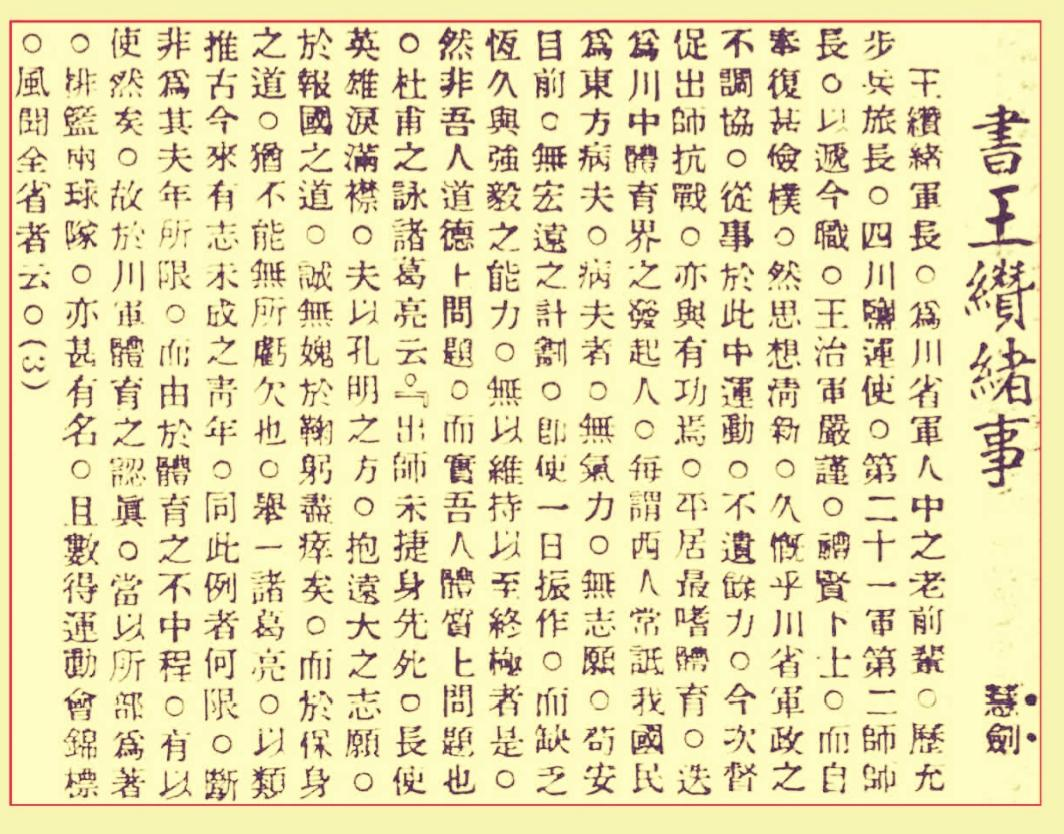 書王纘緒事
慧劍
王纘緒軍長。爲川省軍人中之老前輩。歷充
步兵旅長。四川鹽運使。第二十一軍第二師師
長。以遞今職。王治軍嚴謹。禮賢下士。而自
奉復甚儉樸。然思想清新。久慨乎川省軍政之
不調協。從事於此中運動。不遺餘力。今次督
促出師抗戰。亦與有功焉。平居最嗜體育。迭
爲川中體育界之發起人。每謂西人常詆我國民
爲東方病夫。病夫者。無氣力。無志願。苟安
目前。無宏遠之計劃。即使一日振作。而缺乏
恆久與強毅之能力。無以維持以至終極者是。
然非吾人道德上問題。而實吾人體質上問題也
。杜甫之詠諸葛亮云。『出師未捷身先死。長使
英雄淚滿襟。夫以孔明之方。抱遠大之志願。
於報國之道。誠無媿於鞠躬盡瘁矣。而於保身
之道。猶不能無所虧欠也。舉一諸葛亮。以類
推古今來有志未成之靑年。同此例者何限。斷
非爲其夫年所限。而由於體育之不中程。有以
使然矣。故於川軍體育之認眞。當以所部爲著
。排籃兩球隊。亦甚有名。且數得運動會錦標
。風聞全省者云。(3)